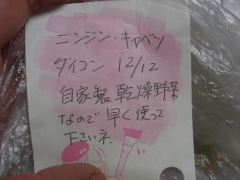 ニンジン・キャベツ
ダイコン 12/12
自家製乾燥野菜
なので早く使って
下さいネ